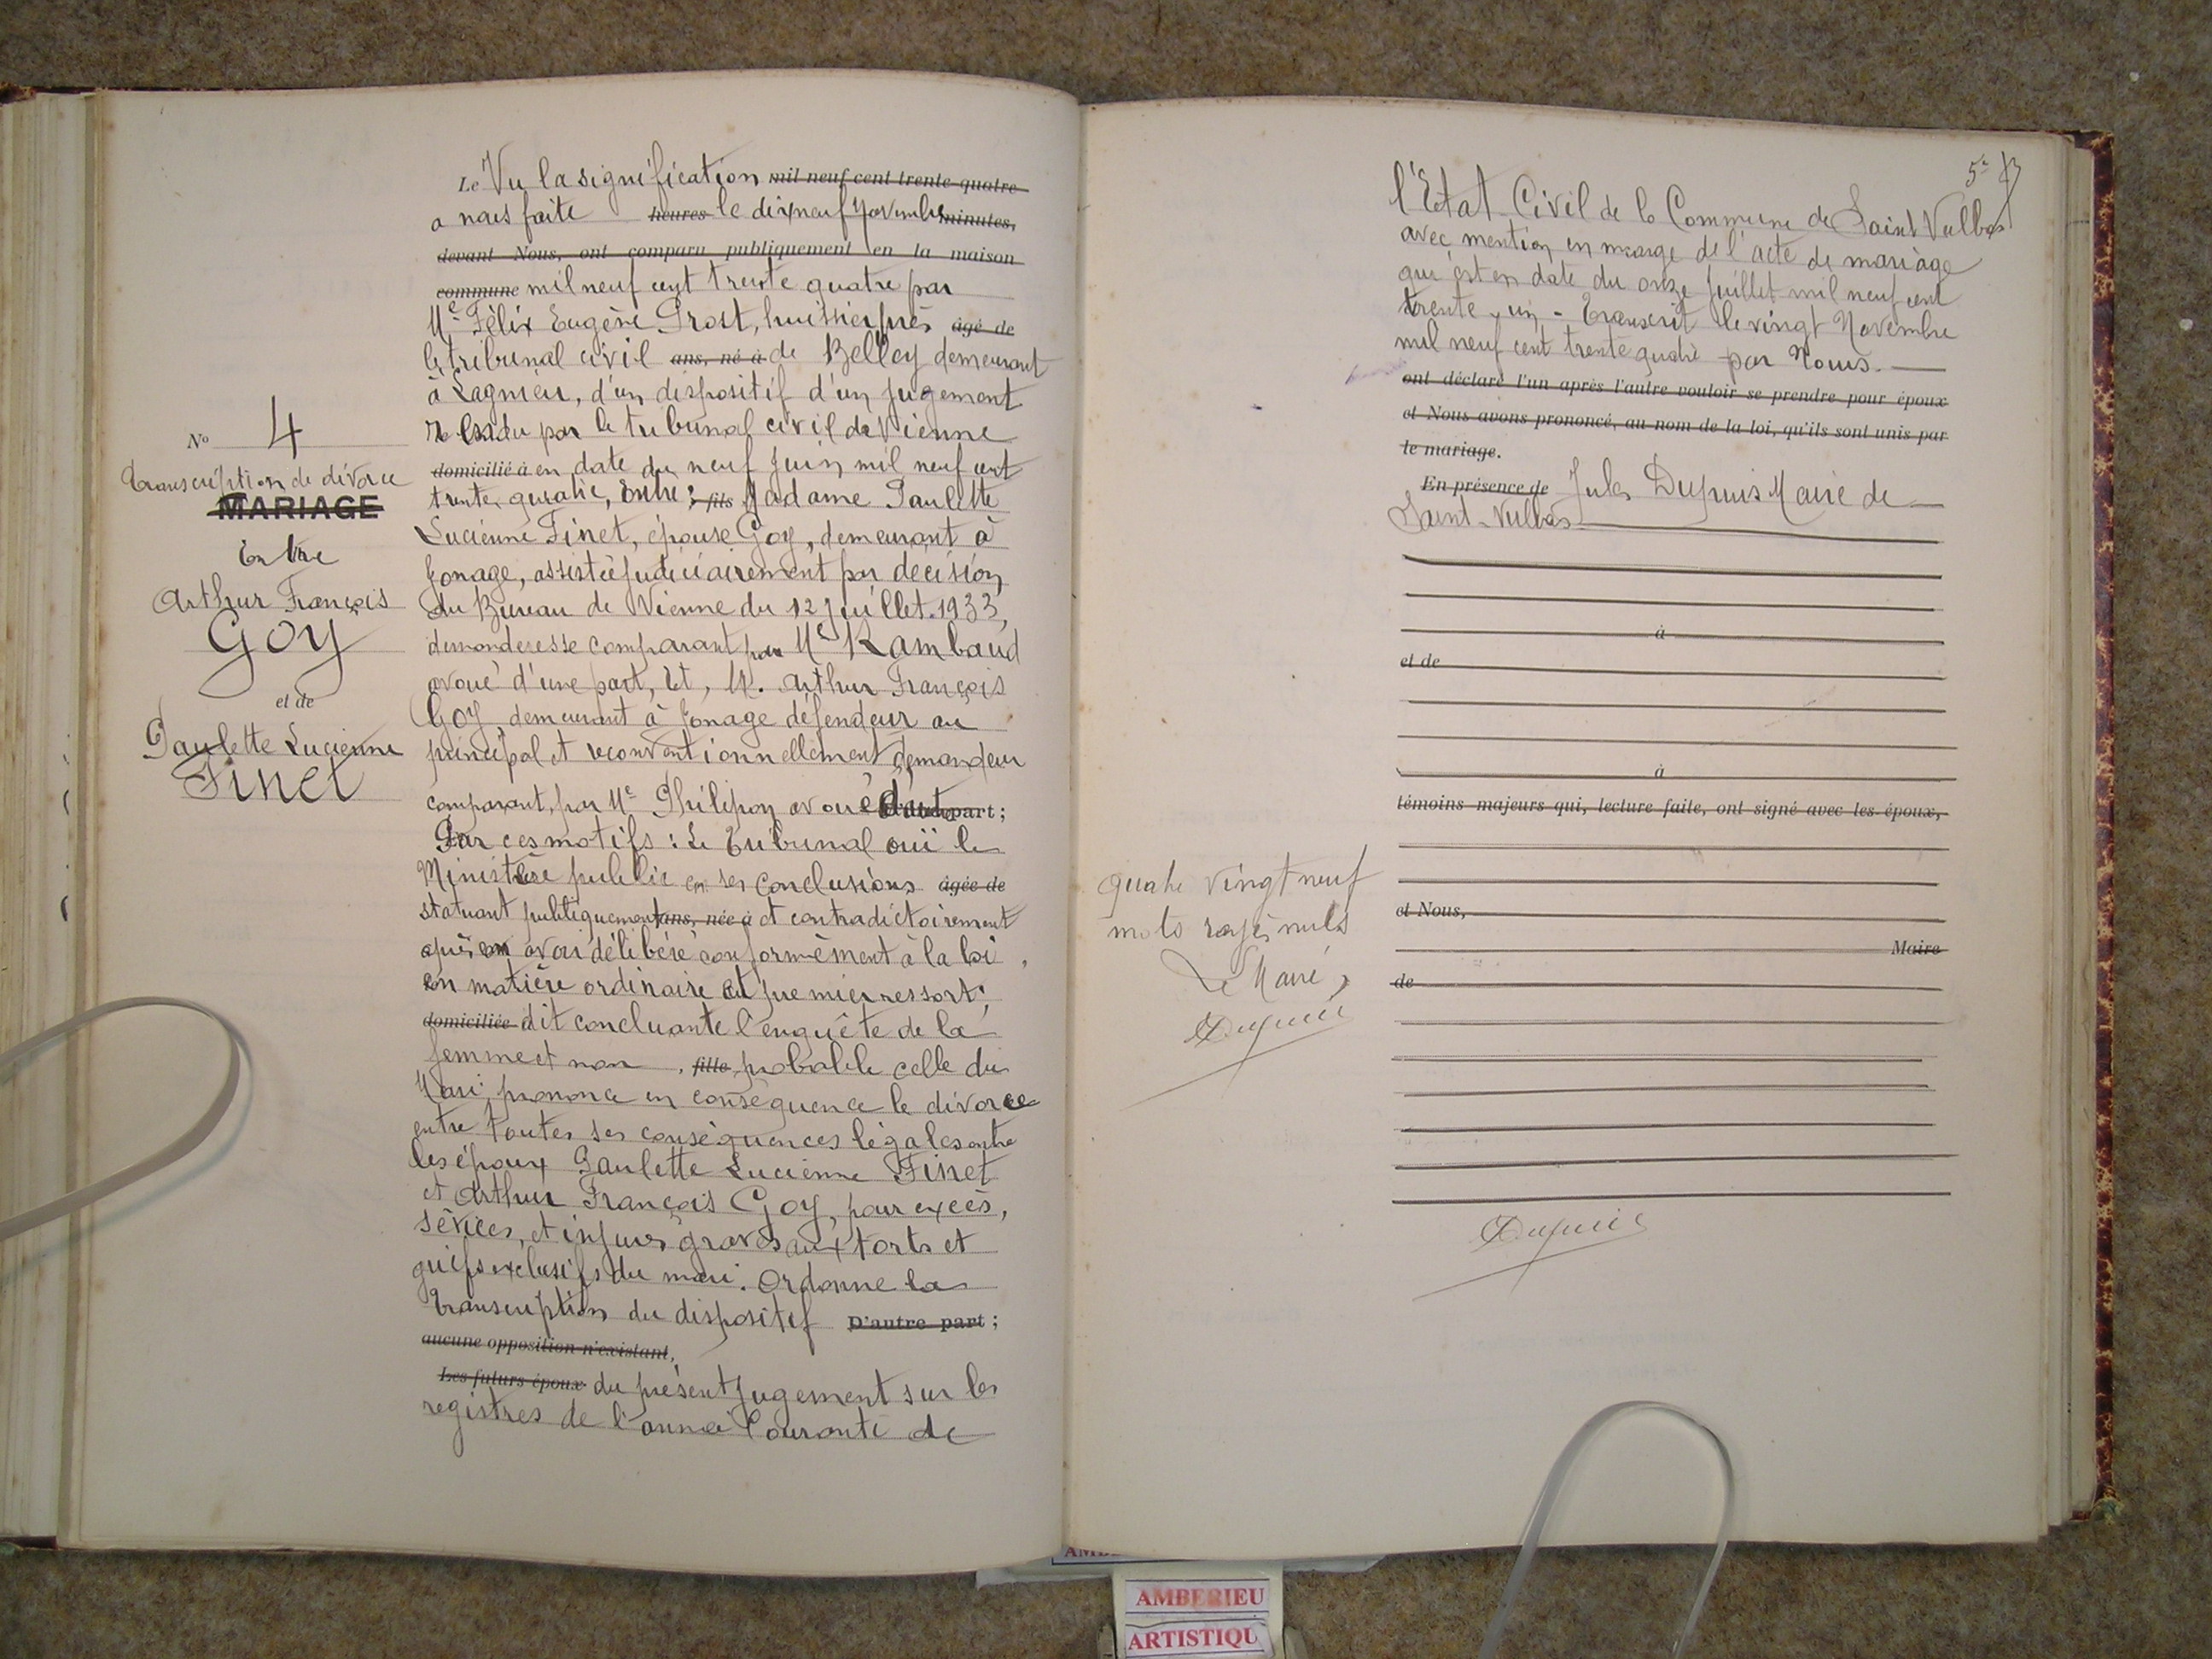 N° 4
Transcription de divorce
MARIAGE
Entre
Arthur François
Goy
et de
Paulette Lucienne
Finet
Le Vu la signification mil neuf cent trente-quatre
a nous faite heures le dix neuf Novembre minutes,
devant Nous, ont comparu publiquement en la maison
commune mil neuf cent trente quatre par
Me Félix Eugène Prost, huissier près âgé de
le tribunal civil ans, né à de Belley demeurant
à Lagnieu, d'un dispositif d'un jugement
rendu par le tribunal civil de Vienne
domicilié à en date du neuf Juin mil neuf cent
trente quatre, Entre : fils Madame Paulette
Lucienne Finet, épouse Goy, demeurant à
Jonage, assistée judiciairement par décision
du Bureau de Vienne du 12 Juillet 1933,
demanderesse comparant par Me Rambaud
avoué d'une part, Et, M. Arthur François
Goy, demeurant à Jonage défendeur au
principal et reconventionnellement demandeur
comparant, par Me Philipon avoué d'autre part;
Par ces motifs : Le Tribunal ouï le
Ministère public en ses conclusions âgée de
statuant publiquement ans, née à et contradictoirement
après en avoir délibéré conformément à la loi,
en matière ordinaire et premier ressort;
domiciliée à dit concluante l'enquête de la
femme et non, fille probable celle du
Mari; prononce en conséquence le divorce
entre toutes ses conséquences légales entre
les époux Paulette Lucienne Finet
et Arthur François Goy, pour excès,
sévices, et injures graves aux torts et
griefs exclusifs du mari. Ordonne la
transcription du dispositif D'autre part;
aucune opposition n'existant,
Les futurs époux du présent jugement sur les
registres de l'année Courante de
l'Etat Civil de la Commune de Saint Vulbas
avec mention en marge de l'acte de mariage
qui est en date du onze Juillet mil neuf cent
trente-un - Transcrit le vingt Novembre
mil neuf cent trente quatre par Nous.
ont déclaré l'un après l'autre vouloir se prendre pour époux
et Nous avons prononcé, au nom de la loi, qu'ils sont unis par
le mariage.
En présence de Jules Dupuis Maire de
Saint-Vulbas
à
et de
à
témoins majeurs qui, lecture faite, ont signé avec les époux,
et Nous,
Maire
de
Dupuis
quatre vingt neuf
mots rayés nuls
Le Maire,
Dupuis
AMBERIEU
ARTISTIQU